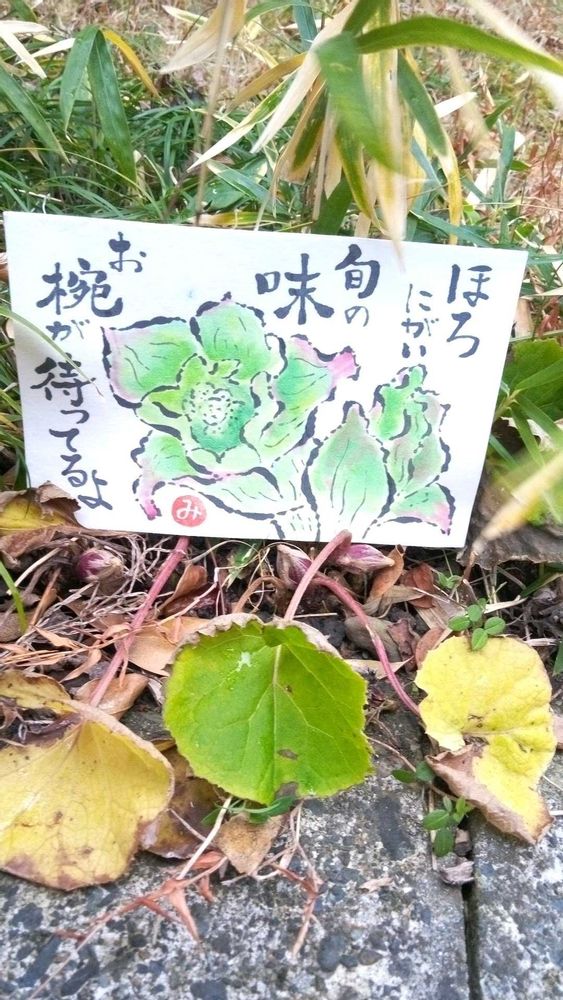 ほろ
にがい
旬の
味
お
椀が
待ってるよ
み